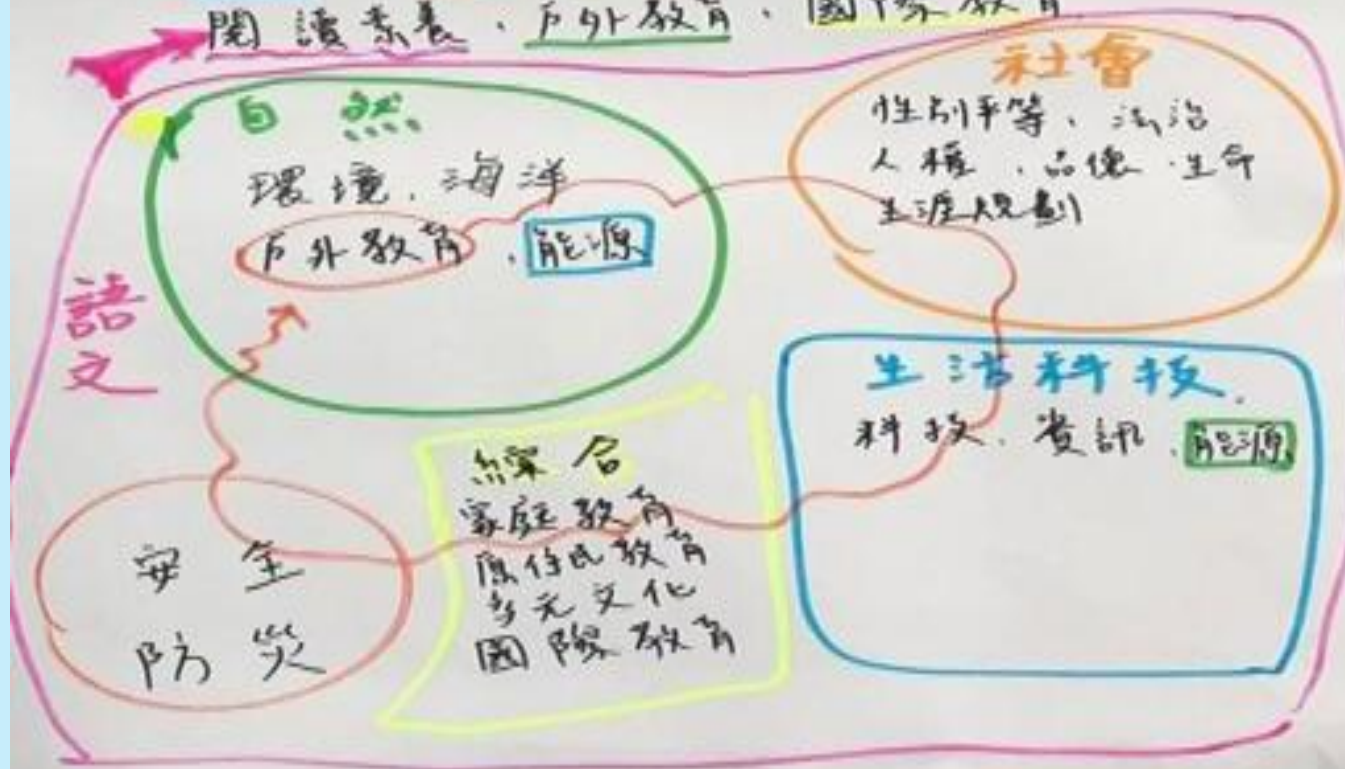 閱讀素養、戶外教育、國際教育
自然
環境、海洋
戶外教育、能源
社會
性別平等、法治
人權、品德、生命
生涯規劃
語文
生活科技
科技、資訊、能源
綜合
家庭教育
原住民教育
多元文化
國際教育
安全
防災